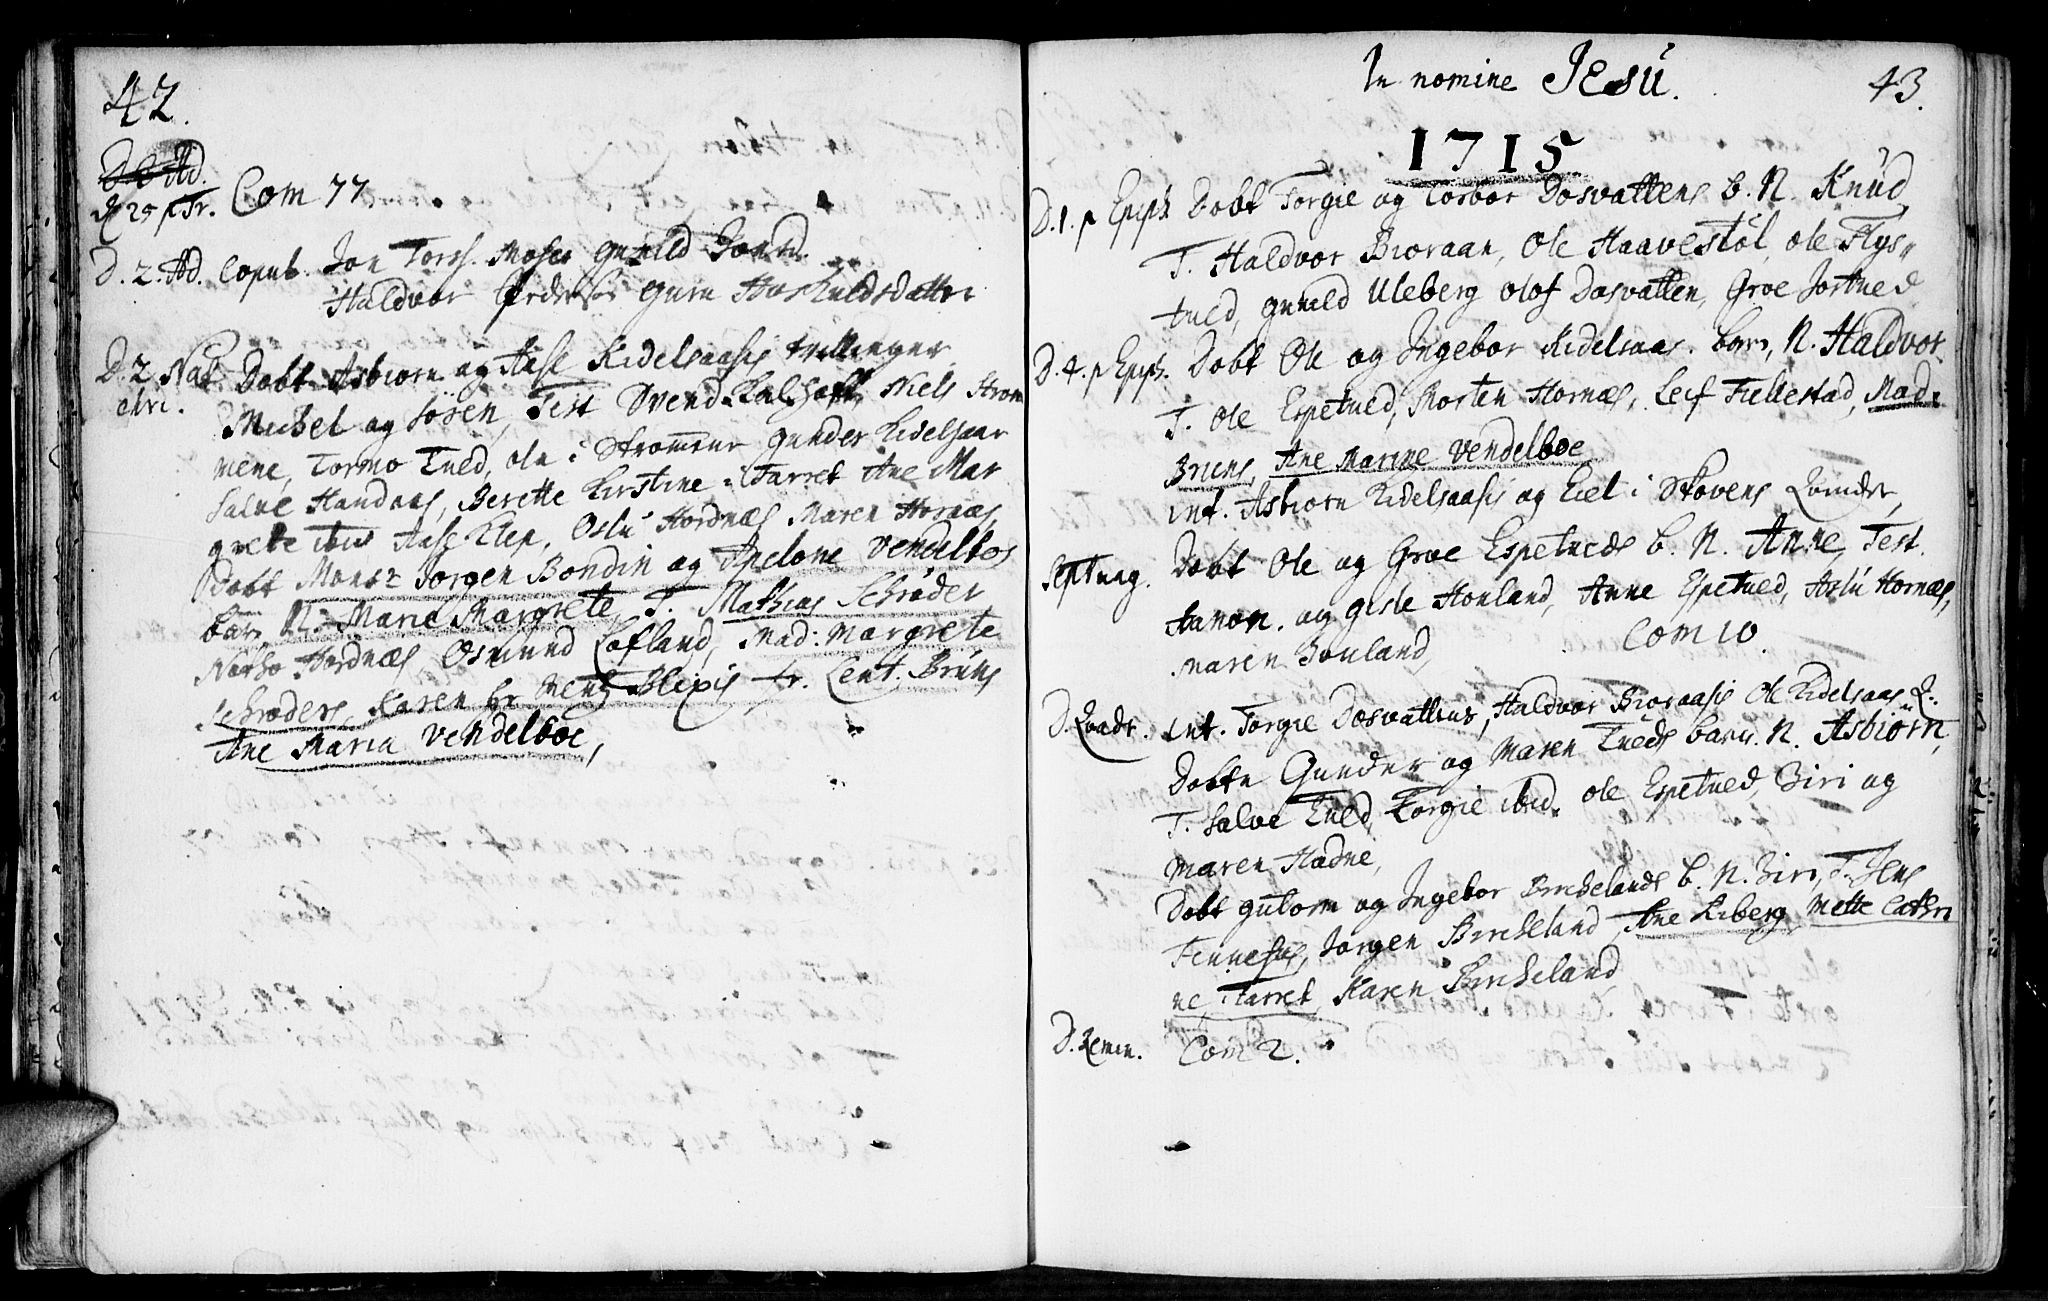 42.
D. 2 Ad.
25 p Tr. Com 77
D. 2. Ad. Copul. Jon Torss. Moseı Gunild Jonsd.
Haldvor Pedersøn Guru Haskuldsdatter
D. 2 Nat. Døbt Asbiørn og Aase Kidelsaasis tvillinger
Chri. Michel og Søren, Test Svend Kalhoft, Niels Strøm
mene, Tormo Tved, Ole i Strømme Gunder Kidelsaas
Salve Haandaas, Berette Kirstine i Farret Ane Mar
grete ibid Aase Klep, Oslu Hordnæs Maren Hornæs,
Døbt Mons: Jørgen Bondin og Apelone Vendelbos
barn N. Maria Margrete, T. Mathias Schrøder
Hordnæs, Osmund Lofland, Mad: Margrete
Schrøders, Karen Blixis fr. Lent. Bruns
Ane Maria Vendelboe,
In nomine Jesu.
43.
1715
D. 1. p Epiph Døbt Torgie og Torbor Dosvattens b. N. Knud
T. Haldvor Bioraan, Ole Haavestøl, Ole Flys„
tued, Gunild Uleberg Olof Dosvatten, Groe Jortued
D. 4. p Epiph. Døbt Ole og Ingebor Kidelsaas. barn, N. Haldvor
T. Ole Espetued, Morten Hornæs, Leif Fillestad, Mad.
Briens, Ane Marine Vendelboe
int. Asbiørn Kidelsaasis og Eiel i Skovens Qvinder,
Septuag. Døbt Ole og Groe Espetueds b. N. Anne, Test.
Aanon. og Gisle Honland, Anne Espetued, Aslu Hornæs,
Maren Honland,
Com 10.
D. Qvadr. int. Torgie Dosvattens, Haldvor Bioraasis Ole Kidelsaas Q:
Døbte Gunder og Maren Tueds barn. N. Asbiørn,
T. Salve Tued, Torgie ibid. Ole Espetued, Siri og
Maren Hædne,
Døbt Gutorm og Ingebor Birchelands b. N. Siri, T. Jens
Tennefss, Jørgen Bircheland, Ane Kiberg Mette Cathri
ne i Farret, Karen Bircheland
D. Remin. Com 2.